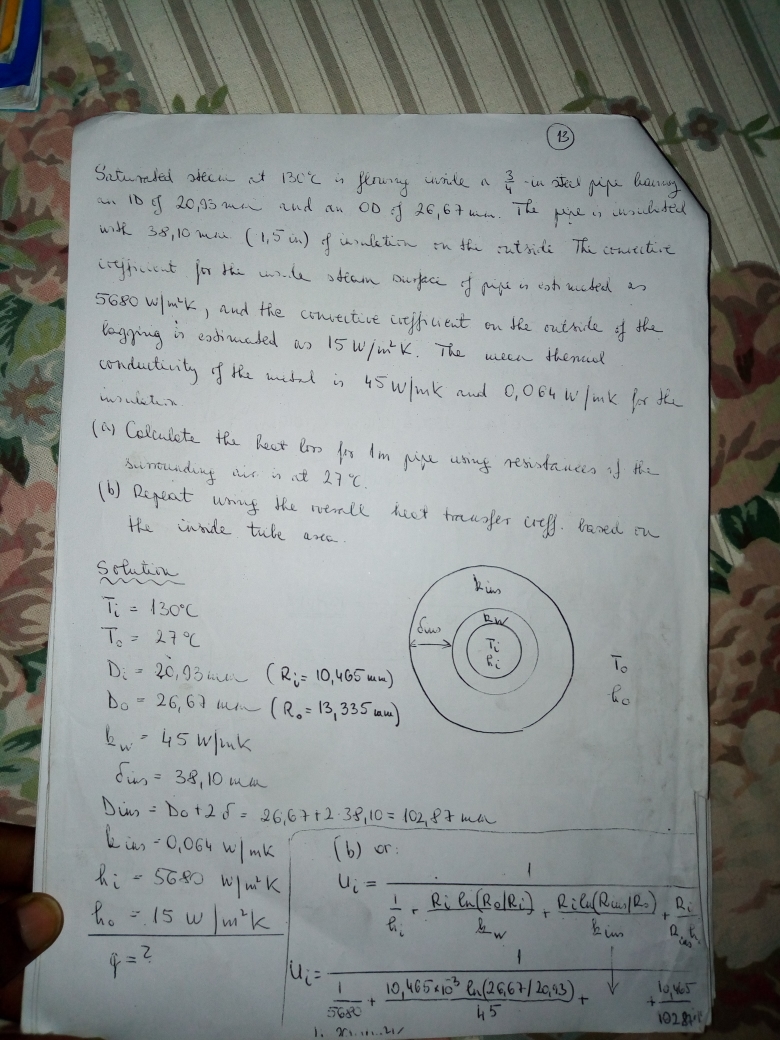 13
Saturated steam at 130°C is flowing inside a 3/4-in steel pipe having
an ID of 20,93 mm and an OD of 26,67 mm. The pipe is insulated
with 38,10 mm (1,5 in) of insulation on the outside. The convective
coefficient for the inside steam surface of pipe is estimated as
5680 W/m²K, and the convective coefficient on the outside of the
lagging is estimated as 15 W/m²K. The mean thermal
conductivity of the metal is 45 W/mK and 0,064 W/mK for the
insulation.
(a) Calculate the heat loss for 1m pipe using resistances if the
surrounding air is at 27°C.
(b) Repeat using the overall heat transfer coeff. based on
the inside tube area.
Solution
Ti = 130°C
To = 27°C
Di = 20,93 mm (Ri = 10,465 mm)
Do = 26,67 mm (Ro = 13,335 mm)
kw = 45 W/mK
δins = 38,10 mm
Dins = Do + 2δ = 26,67 + 2·38,10 = 102,87 mm
kins = 0,064 W/mK
hi = 5680 W/m²K
ho = 15 W/m²K
q = ?
kins
kw
δins
Ti
hi
To
ho
(b) or:
Ui = 1 / (1/hi + Ri ln(Ro/Ri)/kw + Ri ln(Rins/Ro)/kins + Ri/Rins h
Ui = 1 / (1/5680 + 10,465×10⁻³ ln(26,67/20,93)/45 + ↓ + 10,465